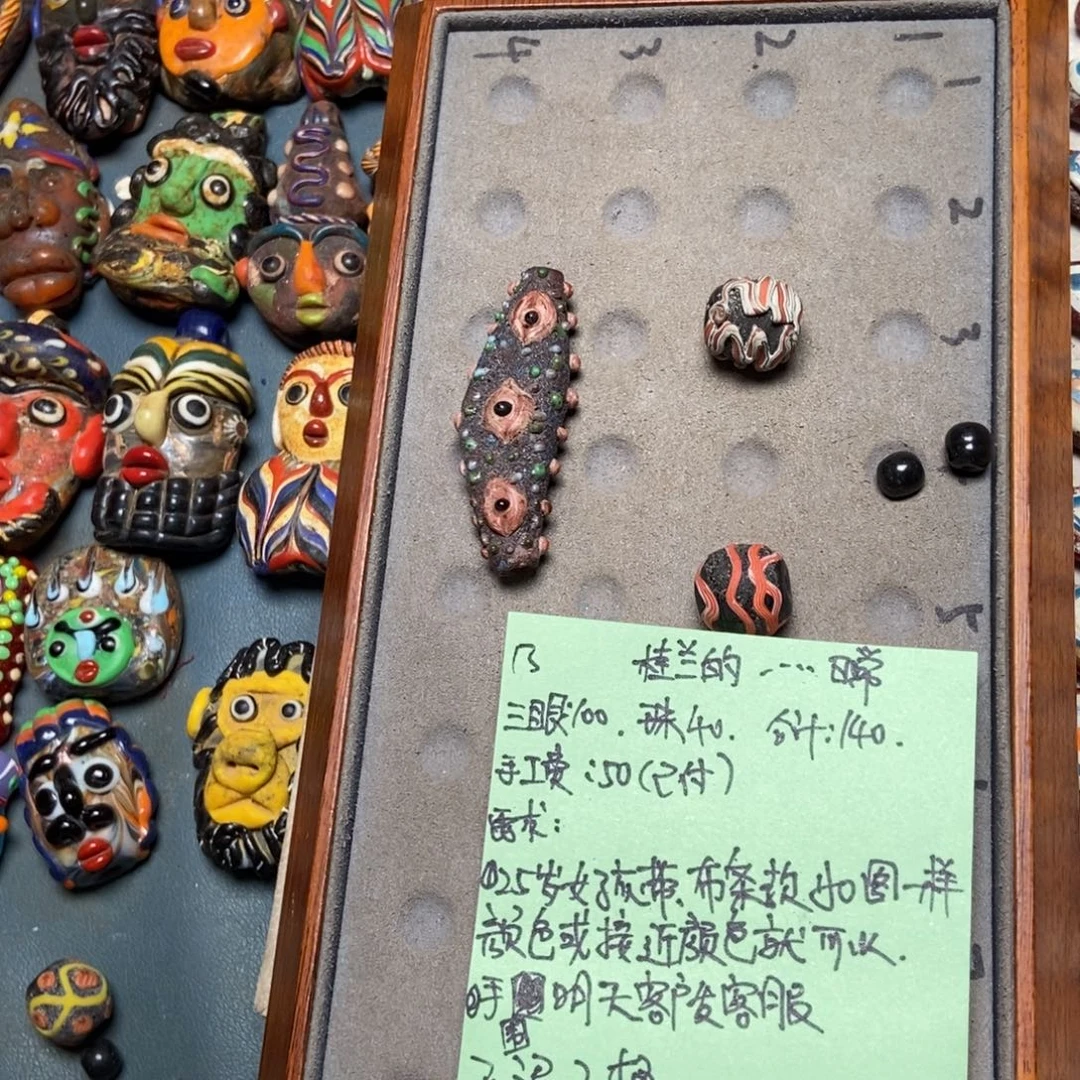 4 3 2 1
1
2
3
5
桂兰的 ....
三眼100. 珠40. 合计:140.
手工费:50(已付)
需求:
①25岁女孩带、布条款,如图一样
颜色或接近颜色就可以.
明天客户发客服